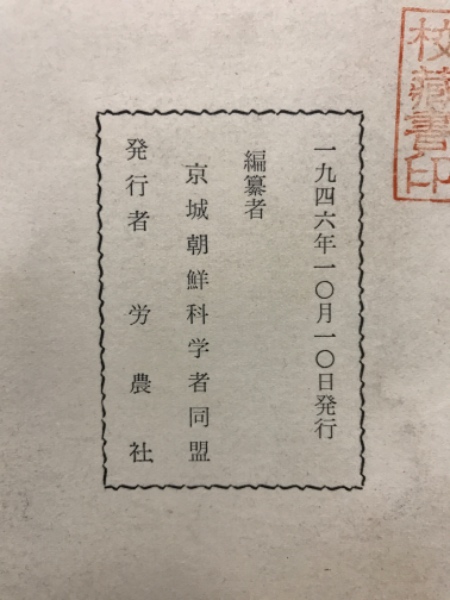 一九四六年一〇月一〇日発行
編纂者
京城朝鮮科学者同盟
発行者 労農社
校蔵書印